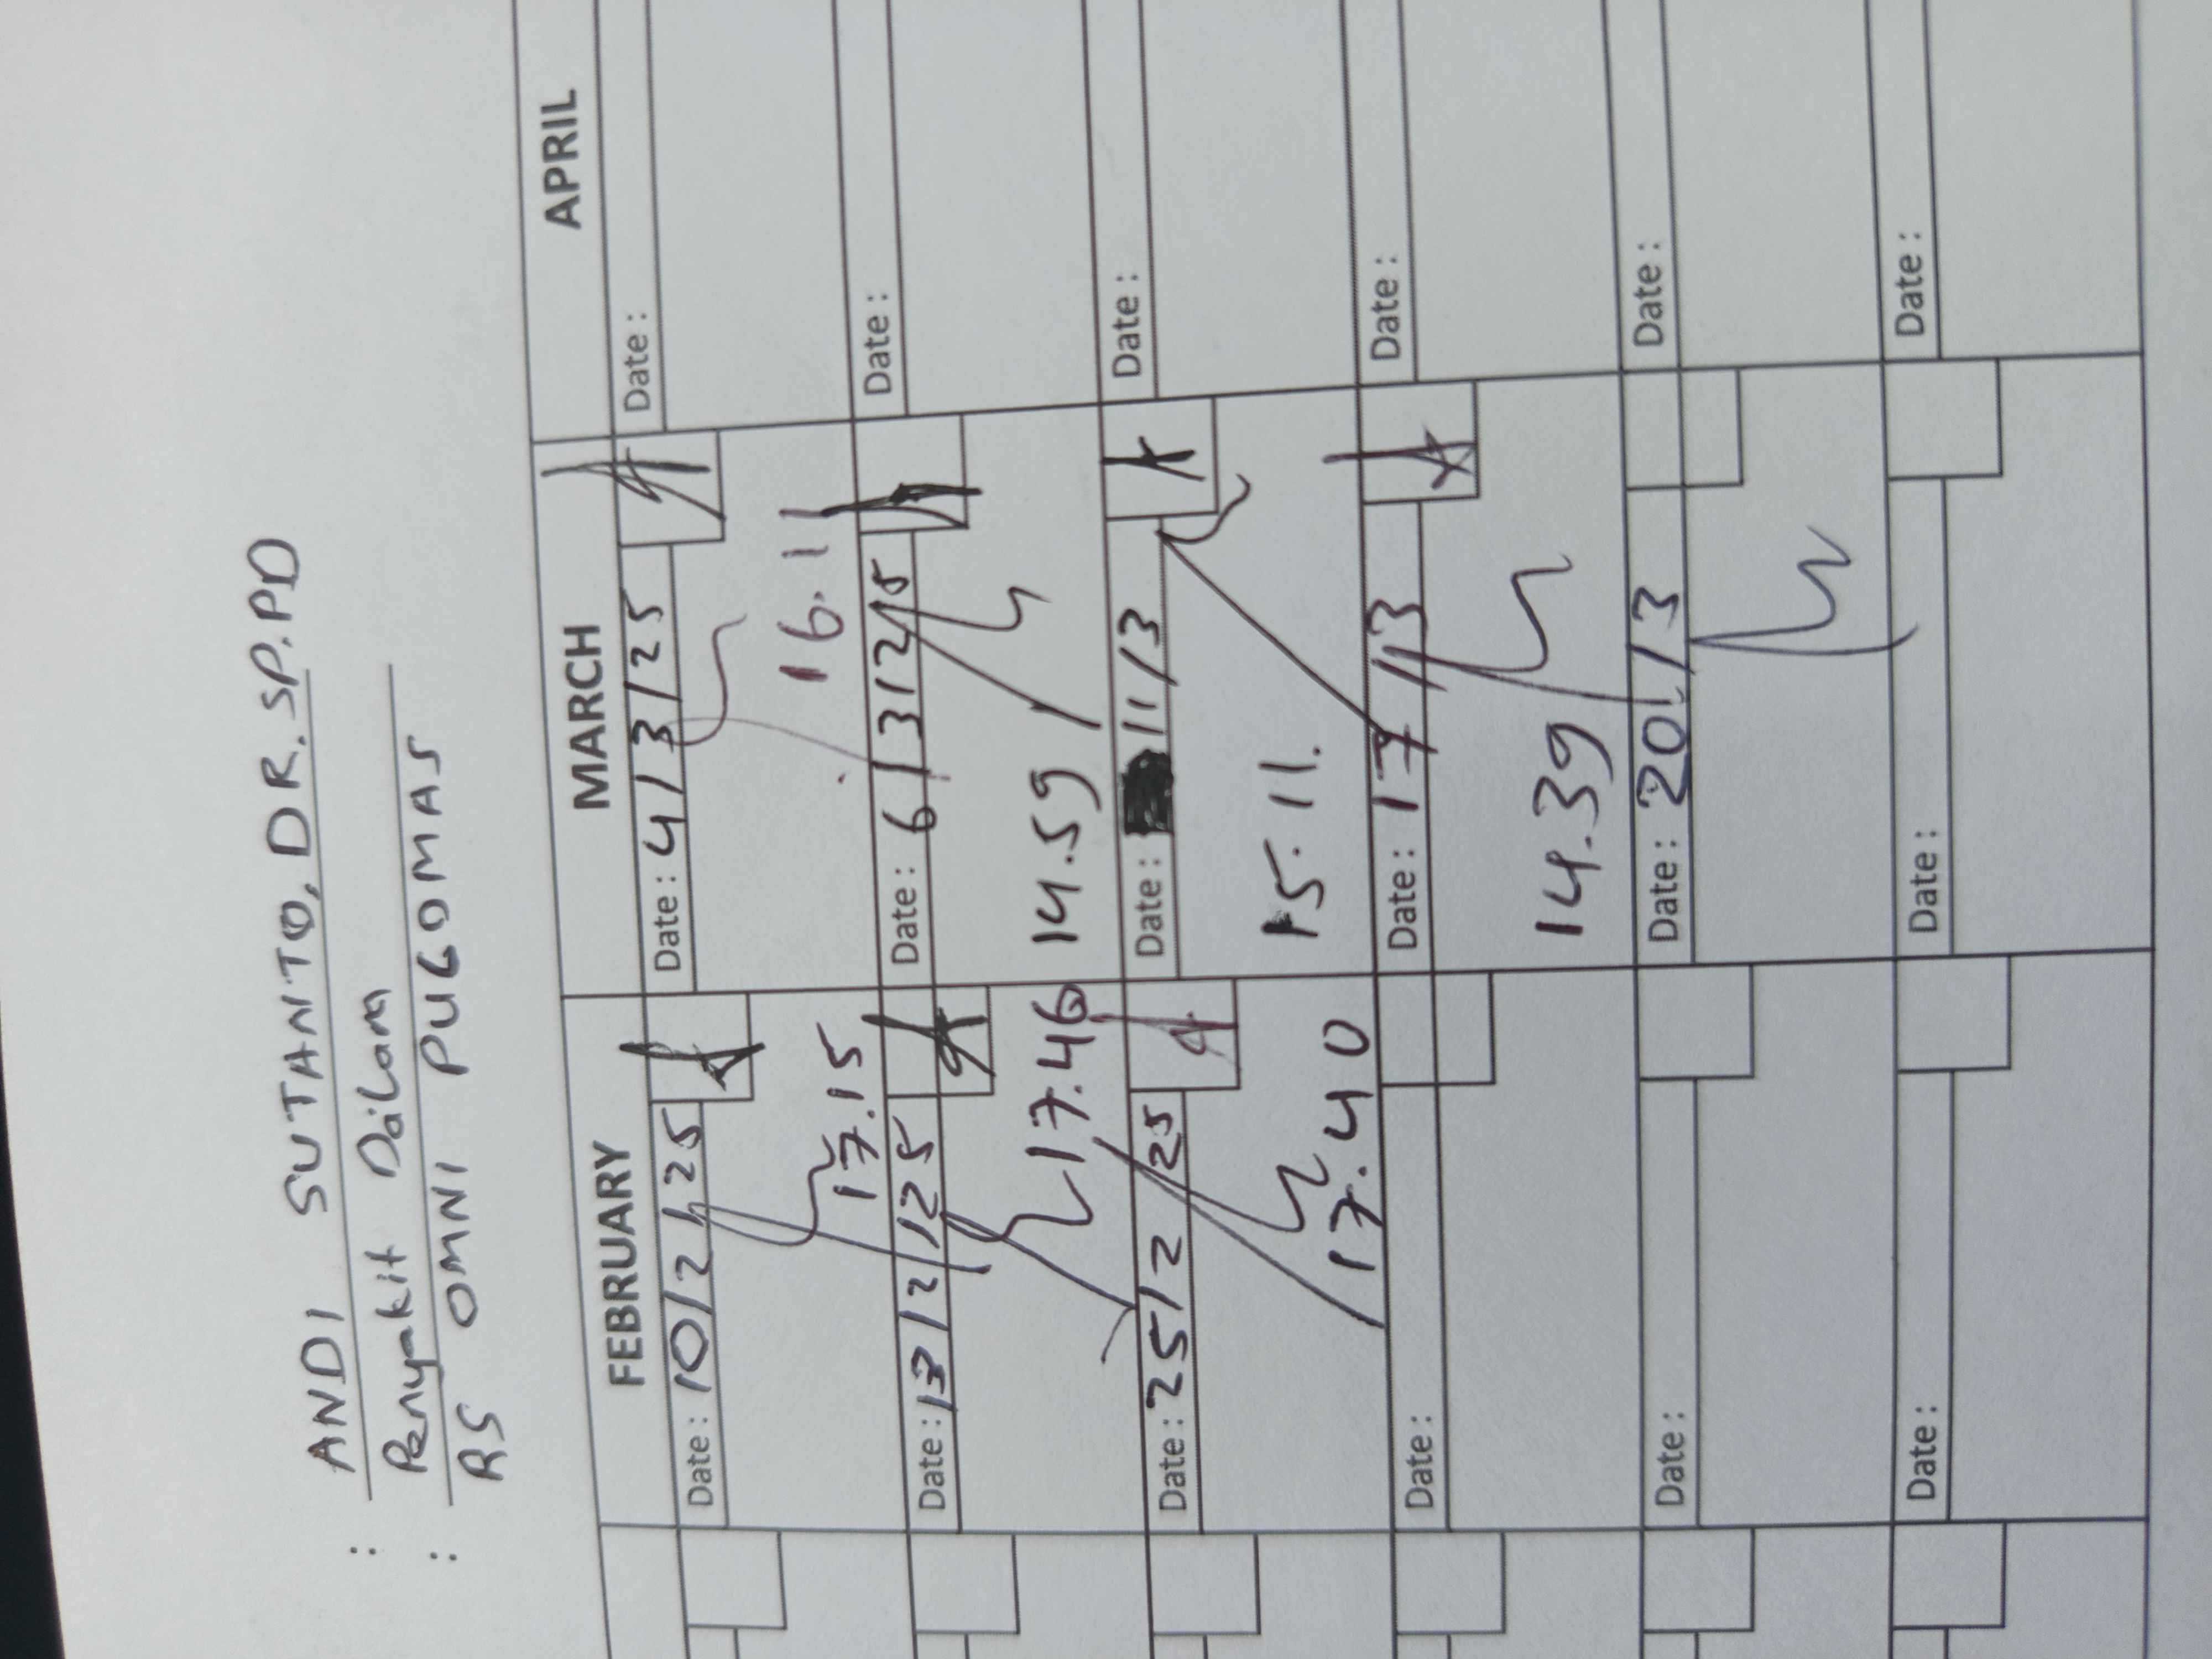 : ANDI SUTANTO, DR. SP.PD
Penyakit Dalam
: RS OMNI PUGOMAS
FEBRUARY MARCH APRIL
Date : 10/2/25 Date : 4/3/25 Date :
17.15 16.11
Date : 13/2/25 Date : 6/3/25 Date :
17.46 14.59
Date : 25/2 25 Date : 11/3 Date :
17.40 15.11.
Date : Date : 17/3 Date :
14.39
Date : Date : 20/3 Date :
Date : Date : Date :